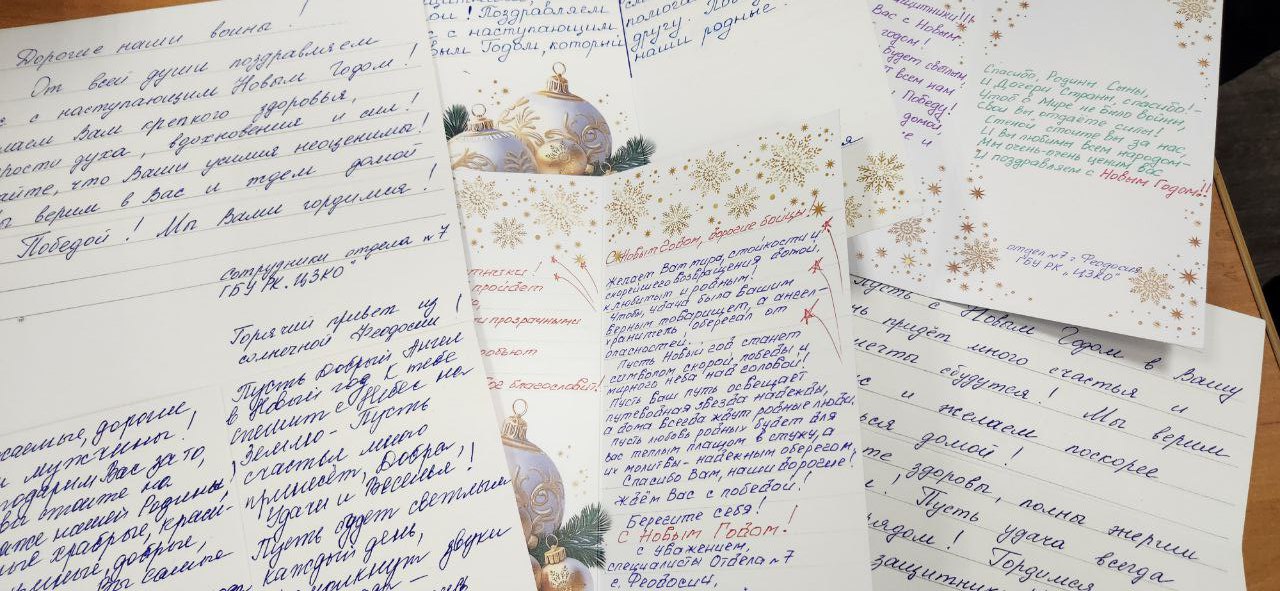 Дорогие наши воины !
От всей души поздравляем
с наступающим Новым Годом !
Вам крепкого здоровья,
духа, вдохновения и сил !
что Ваши усилия неоценимы !
верим в Вас и ждем домой
Победой ! Мы Вами гордимся !
Сотрудники отдела №7
ГБУ РК "ЦЗКО"
дорогие
мужчины !
Вас за то,
вы стоите на
нашей Родины,
храбрые,
добрые,
Вы самые
Горячий привет из
солнечной Феодосии !
Пусть Добрый Ангел
в Новый год к тебе
спешит с Небес на
Землю - Пусть
счастья много
принесёт, Добра,
Удачи и Веселья !
Пусть будет светлым
каждый день,
звуки
! Поздравляем
с наступающим
Годом, который
другу.
наши родные.
прозрачными
благословит!
С Новым Годом, дорогие бойцы !
Желаем Вам мира, стойкости и
скорейшего возвращения домой,
к любимым и родным !
Чтобы удача была Вашим
верным товарищем, а ангел-
хранитель оберегал от
опасностей.
Пусть Новый год станет
символом скорой победы и
мирного неба над головой !
Пусть Ваш путь освещает
путеводная звезда надежды,
а дома всегда ждут родные люди,
пусть любовь родных будет для
вас теплым плащом в стужу, а
их молитвы - надежным оберегом,
Спасибо Вам, наши дорогие !
Ждём Вас с победой !
Берегите себя !
С Новым Годом !
с уважением,
специалисты Отдела №7
г. Феодосии,
Вас с Новым
годом !
будет светлым
всем нам
Победу !
домой,
и
Спасибо, Родины Сыны,
И Дочери Страны, спасибо! -
Чтоб в Мире не было войны,
Свои вы отдаёте силы!
Стеной стоите вы за нас,
И вы любимы всем народом -
Мы очень-очень ценим вас
И поздравляем с Новым Годом!!
отдел №7 г Феодосия
ГБУ РК "ЦЗКО"
Пусть с Новым Годом в Вашу
придёт много счастья и
мечты сбудутся ! Мы верим
и желаем поскорее
домой !
здоровы, полны энергии
! Пусть удача всегда
рядом ! Гордимся